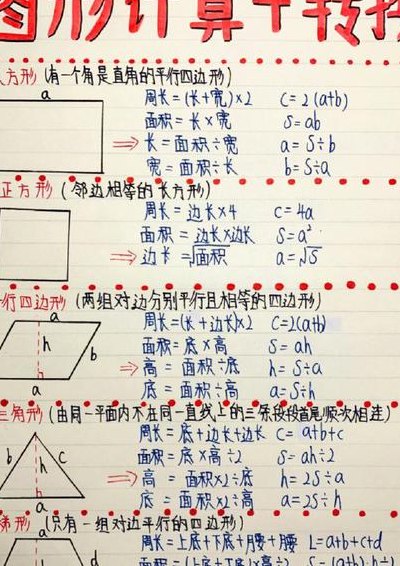 图形计算+转换
方形 (有一个角是直角的平行四边形)
a
周长=(长+宽)×2 C=2(a+b)
面积=长×宽 S=ab
⇒长=面积÷宽 a=S÷b
宽=面积÷长 b=S÷a
正方形 (邻边相等的长方形)
周长=边长×4 C=4a
面积=边长×边长 S=a²
⇒边长=√面积 a=√S
行四边形 (两组对边分别平行且相等的四边形)
a
周长=(长+边长)×2 C=2(a+b)
h
b
面积=底×高 S=ah
⇒高=面积÷底 h=S÷a
a
底=面积÷高 a=S÷h
三角形 (由同一平面内不在同一直线上的三条段段首尾顺次相连)
周长=底+边长+边长 C=a+b+c
b h c
面积=底×高÷2 S=ah÷2
⇒高=面积×2÷底 h=2S÷a
a
底=面积×2÷高 a=2S÷h
梯形 (只有一组对边平行的四边形)
a
周长=上底+下底+腰+腰 L=a+b+c+d
d
面积=(上底+下底)×高÷2 S=(a+b)·h÷2